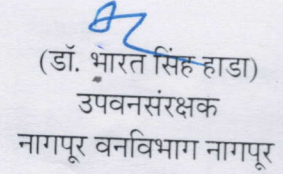 (डॉ. भारत सिंह हाडा)
उपवनसंरक्षक
नागपूर वनविभाग नागपूर